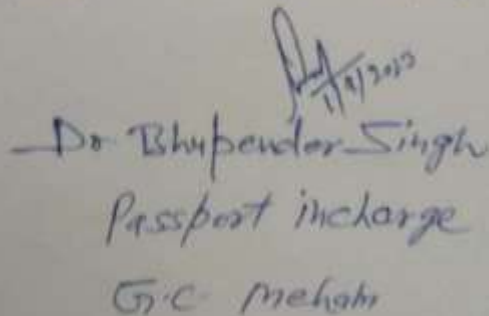 1/9/2022
Dr Bhupender Singh
Passport incharge
G.C. Meham